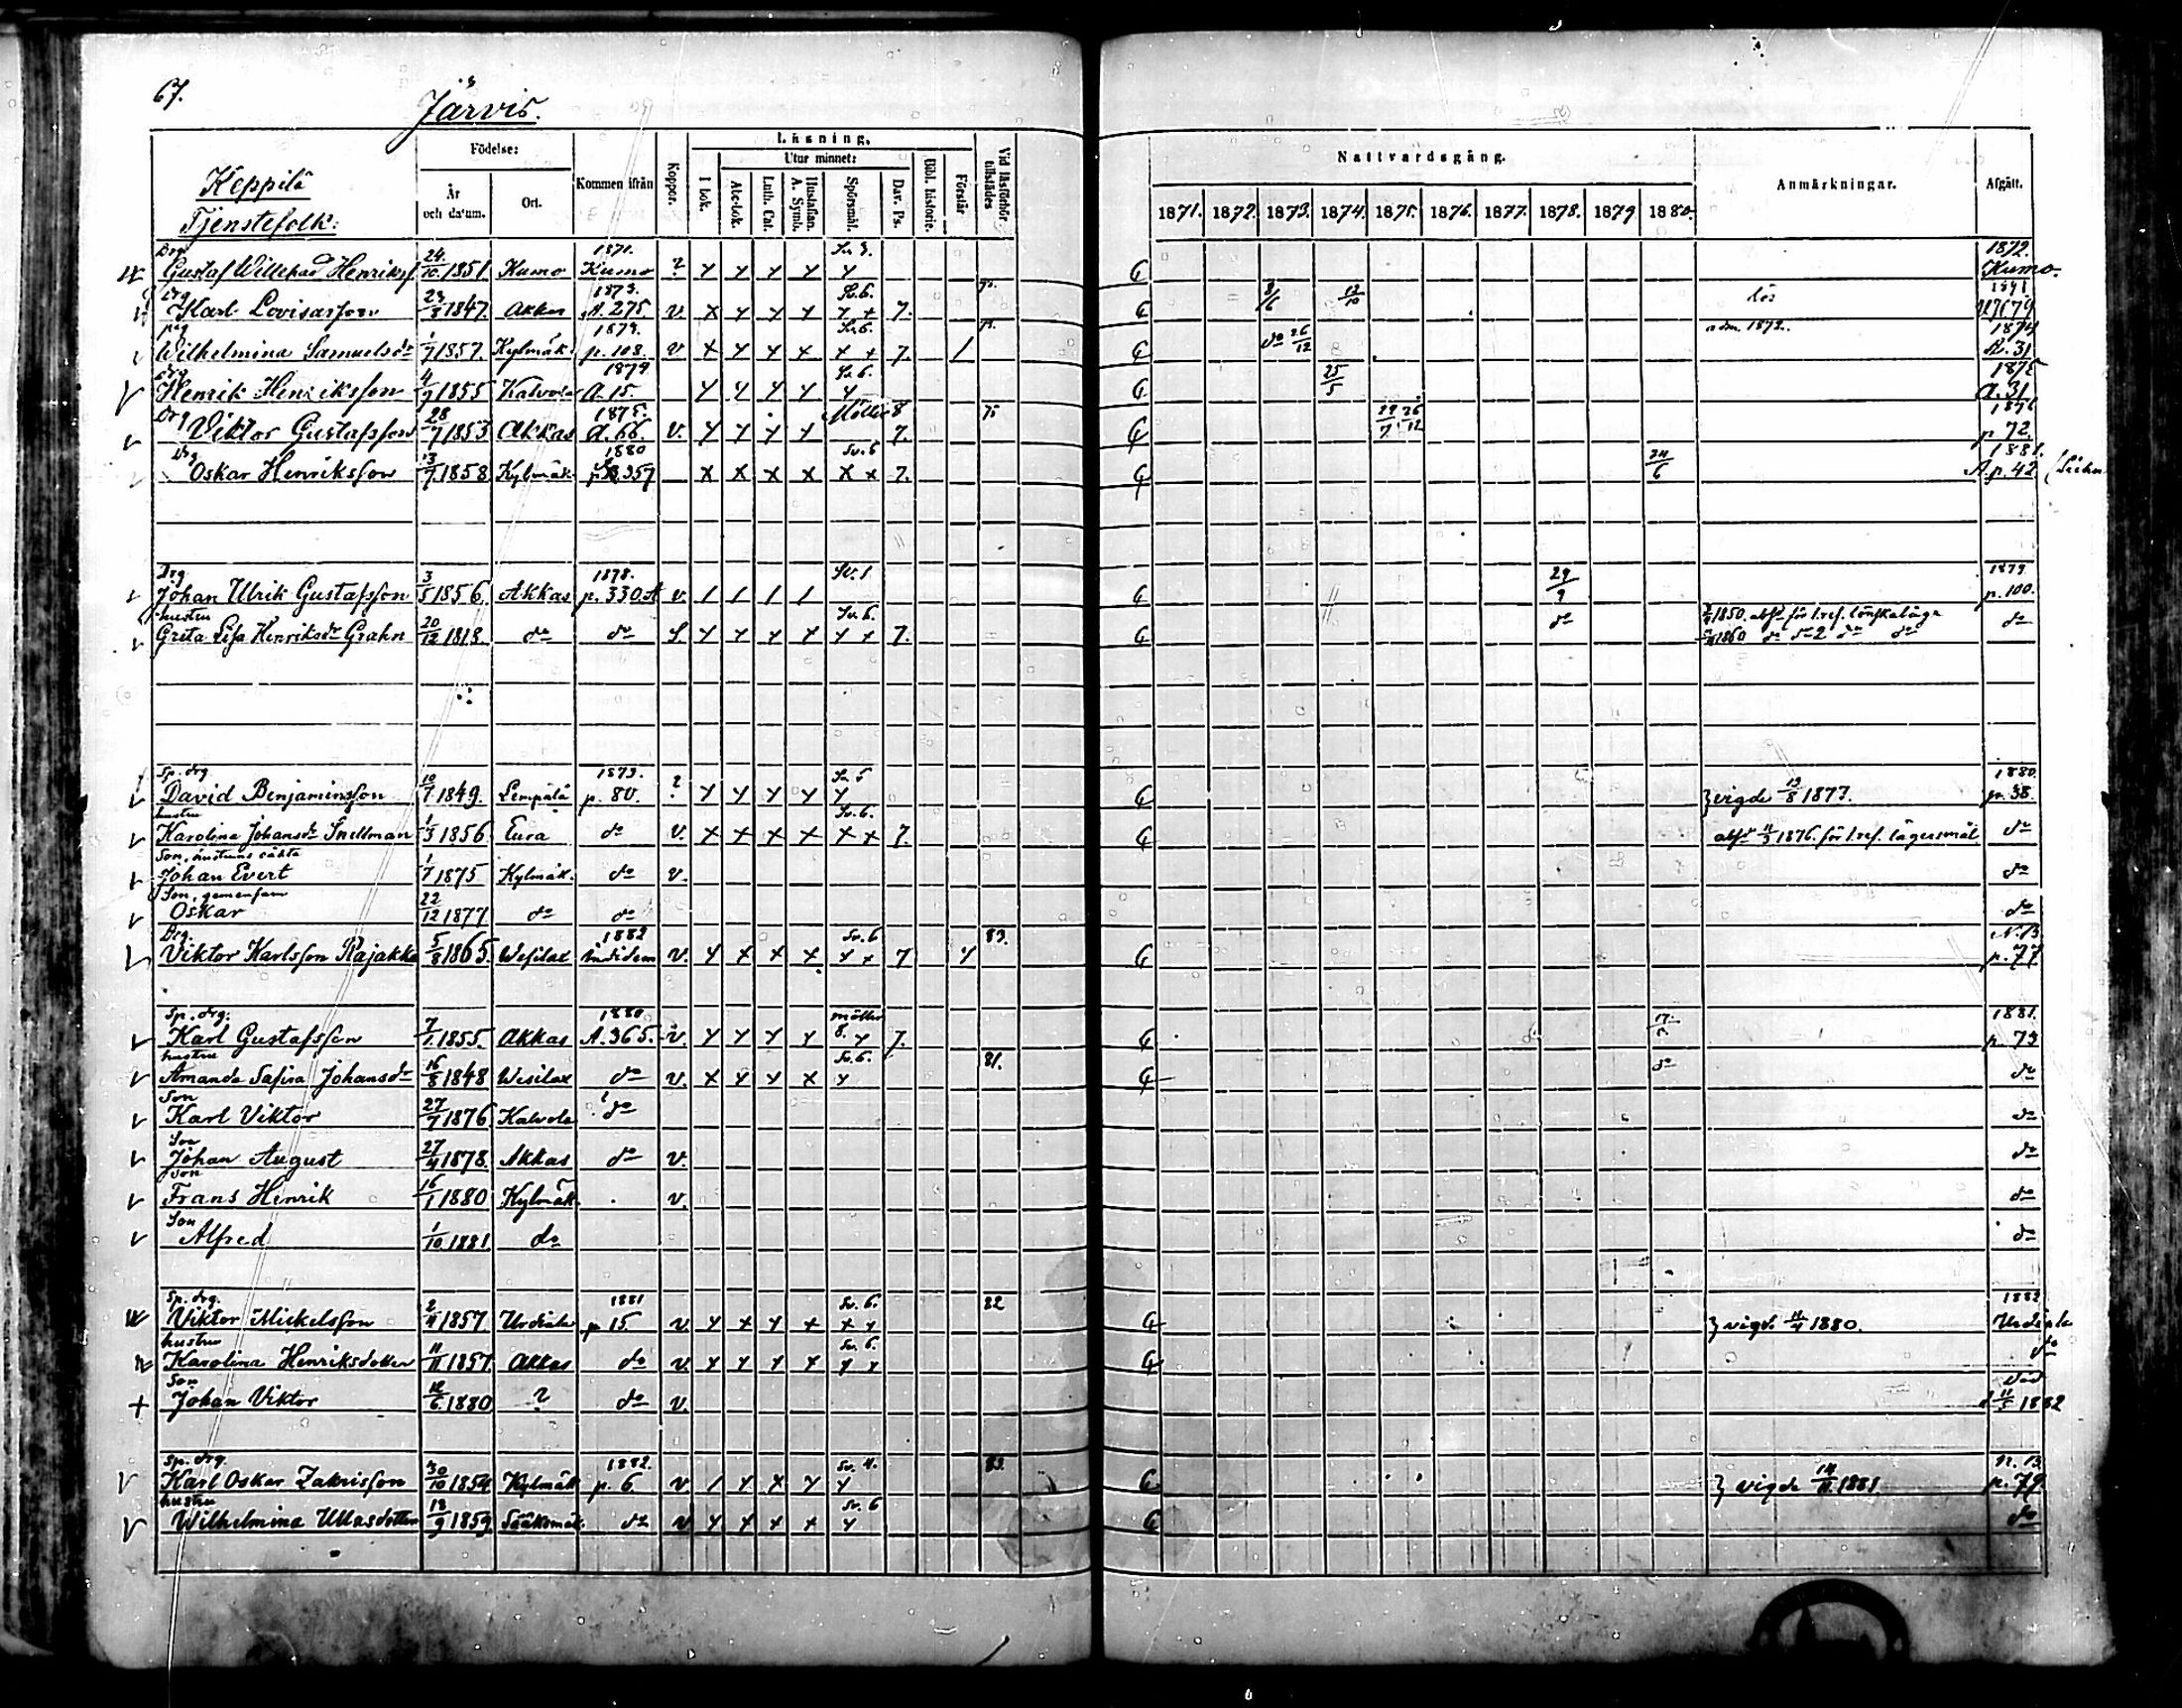 67.
Järvis.
Keppilä
Tjenstefolk:
Födelse:
År och datum.
Ort.
Kommen ifrån
Koppor.
Läsning.
I bok.
Utur minnet:
Abc-bok.
Luth. Cat.
Hustaflan. A. Symb.
Spörsmål.
Dav. Ps.
Bibl. historie.
Förstår
Vid läsförhör tillstädes
Nattvardsgång.
1871. 1872. 1873. 1874. 1875. 1876. 1877. 1878. 1879 1880.
Anmärkningar.
Afgått.
Drg 1871. 1872.
Gustaf Willehad Henrikss. 24/10 1851 Kumo Kumo ? Kumo.
Drg 1873. Sv. 6.
Karl Lovisasson 23/3 1847. Akkas A. 275. v. 7. 8/6 13/10
pig Sv. 6. adm. 1872. 1874
Wilhelmina Samuelsdr 1/7 1857. Kylmäk. p. 108. v 7. do 26/12
drg 1874 Sv. 6. 1875
Henrik Henriksson 4/9 1855 Kalvola A. 15. 25/5 A. 31.
Drg 1875. Möller 8 75 1876
Viktor Gustafsson 28/7 1853 Akkas A. 66. v. 7. p 72.
Drg 1880 Sv. 6 1881.
Oskar Henriksson 13/7 1858 Kylmäk. 7. A p. 42.
Drg 1878. Sv. 1 1879
Johan Ulrik Gustafsson 3/5 1856. Akkas p. 330 A v. 29/9 p. 100.
hustru Sv. 6. 1850. absr för 1. ref. lönskaläge
Greta Lisa Henriksdr Grahn 20/12 1818. do do S. 7. do 1860 do do 2 do do do
Sp. drg 1879. Sv. 5 1880.
David Benjaminsson 10/7 1849. Lempälä p. 80. ? vigde 19/8 1877. p. 38.
hustru Sv. 6.
Karolina Johansdr Snellman 1/3 1856. Eura do v. 7. 1876. för 1. ref. lägersmål do
Son, hustruns oäkta
Johan Evert 1/7 1875 Kylmäk. do v. do
Son, gemensam
Oskar 22/12 1877 do do do
Drg. 1882 Sv. 6 83. N. B.
Viktor Karlsson Rajakka 5/8 1865. Wesilax v. 7 p. 77
Sp. drg: 1880. möller 1881.
Karl Gustafsson 7/1 1855. Akkas A. 365. v. 8. 7. p. 73
hustru Sv. 6. 81.
Amanda Safira Johansdr 16/8 1848 Wesilax do v. do do
Son
Karl Viktor 27/7 1876 Kalvola do do
Son
Johan August 27/4 1878. Akkas do v. do
Son
Frans Henrik 16/1 1880 Kylmäk. v. do
Son
Alfred 1/10 1881 do do
Sp. drg. 1881 Sv. 6. 82 1882
Viktor Mickelsson 2/4 1857. Urdiala p. 15. v. vigde 1880. Urdiala
hustru Sv. 6.
Karolina Henriksdotter 11/11 1857. Akkas do v. do
Son död
Johan Viktor 12/6 1880 ? do v. 11/5 1882
Sp. drg. 1882. Sv. 4. 83. N. B.
Karl Oskar Zakrisson 30/10 1854 Kylmäk. p. 6 v. vigde 14/11 1881 p. 79.
hustru Sv. 6
Wilhelmina Ullasdotter 18/9 1859 Sääksmäk. do v. do